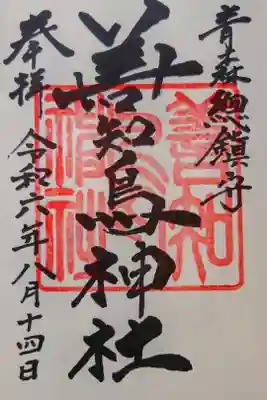 青森総鎮守
善知鳥神社
奉拝
令和六年八月十四日